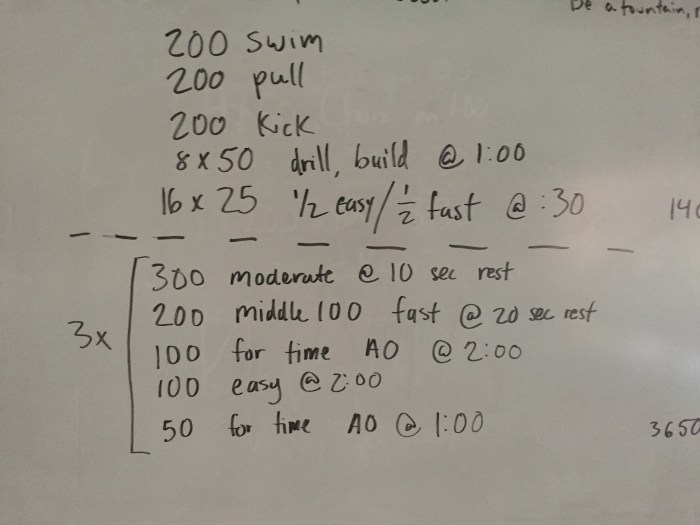 De a fountain,
200 swim
200 pull
200 kick
8 x 50 drill, build @ 1:00
16 x 25 1/2 easy/ 1/2 fast @ :30
140
300 moderate @ 10 sec rest
200 middle 100 fast @ 20 sec rest
3x
100 for time AO @ 2:00
100 easy @ 2:00
50 for time AO @ 1:00
3650